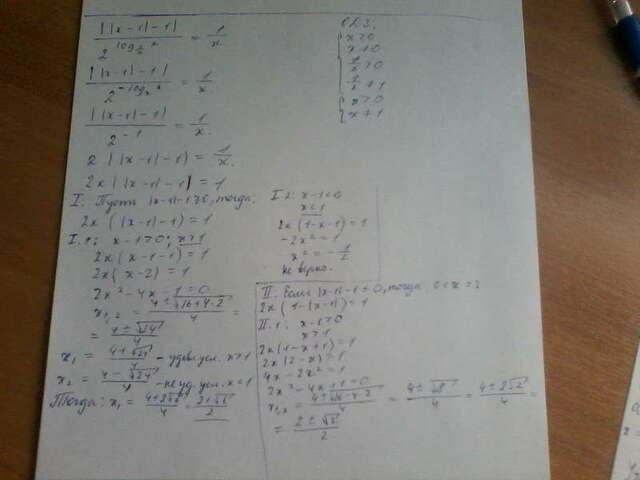 ||x-1|-1| / 2^{log_{1/2} x} = 1/x.
||x-1|-1| / 2^{-log_2 x} = 1/x.
||x-1|-1| / 2^{-1} = 1/x.
2||x-1|-1| = 1/x.
2x||x-1|-1| = 1
I. Пусть |x-1|-1≥0, тогда:
2x(|x-1|-1)=1
I.1: x-1>0; x>1
2x(x-1-1)=1
2x(x-2)=1
2x²-4x-1=0
x₁,₂ = (4±√(16+4·2))/4 =
= (4±√24)/4
x₁ = (4+√24)/4 - удовл. усл. x>1
x₂ = (4-√24)/4 - не уд. усл. x>1
Тогда: x₁ = (4+2√6)/4 = (2+√6)/2
О.D.З.:
x>0
x≠0
1/2>0
1/2≠1
x>0
x≠1
I.2: x-1<0
x<1
2x(1-x-1)=1
-2x²=1
x²=-1/2
не верно.
II. Если |x-1|-1≤0, тогда
2x(1-|x-1|)=1
II.1: x-1>0
x>1
2x(1-x+1)=1
2x(2-x)=1
4x-2x²=1
2x²-4x+1=0
x₁,₂ = (4±√(16-4·2))/4 = (4±√8)/4 = (4±2√2)/4 =
= (2±√2)/2